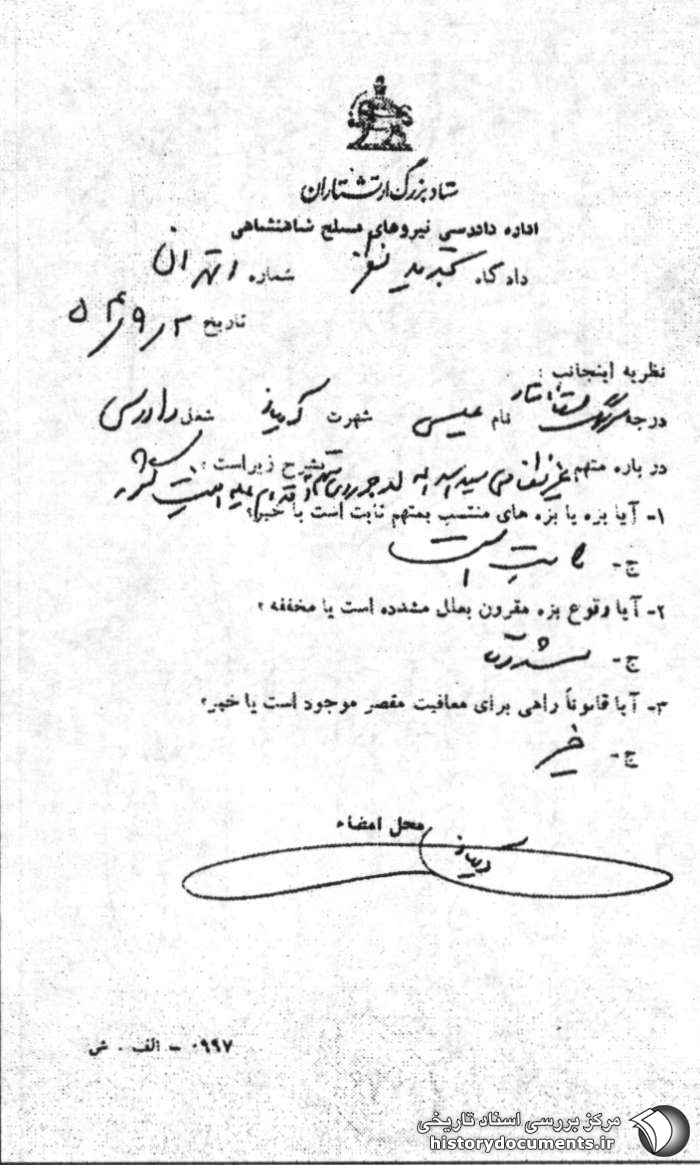 ستاد بزرگ ارتشتاران
اداره دادرسی نیروهای مسلح شاهنشاهی
دادگاه تجدید نظر شماره ۱ تهران
تاریخ
نظریه اینجانب :
درجه سرهنگ نام عیسی شهرت شغل دادرس
در باره متهم غیرنظامی سید اسد اله لاجوردی متهم به اقدام علیه امنیت کشور بشرح زیر است :
۱- آیا بزه یا بزه های منتسب بمتهم ثابت است یا خیر؟
ج - ثابت است
۲- آیا وقوع بزه مقرون بعلل مشدده است یا مخففه ؟
ج -
۳- آیا قانوناً راهی برای معافیت مقصر موجود است یا خیر؟
ج - خیر
محل امضاء
۰۹۹۷ - الف . ش
مرکز بررسی اسناد تاریخی
historydocuments.ir